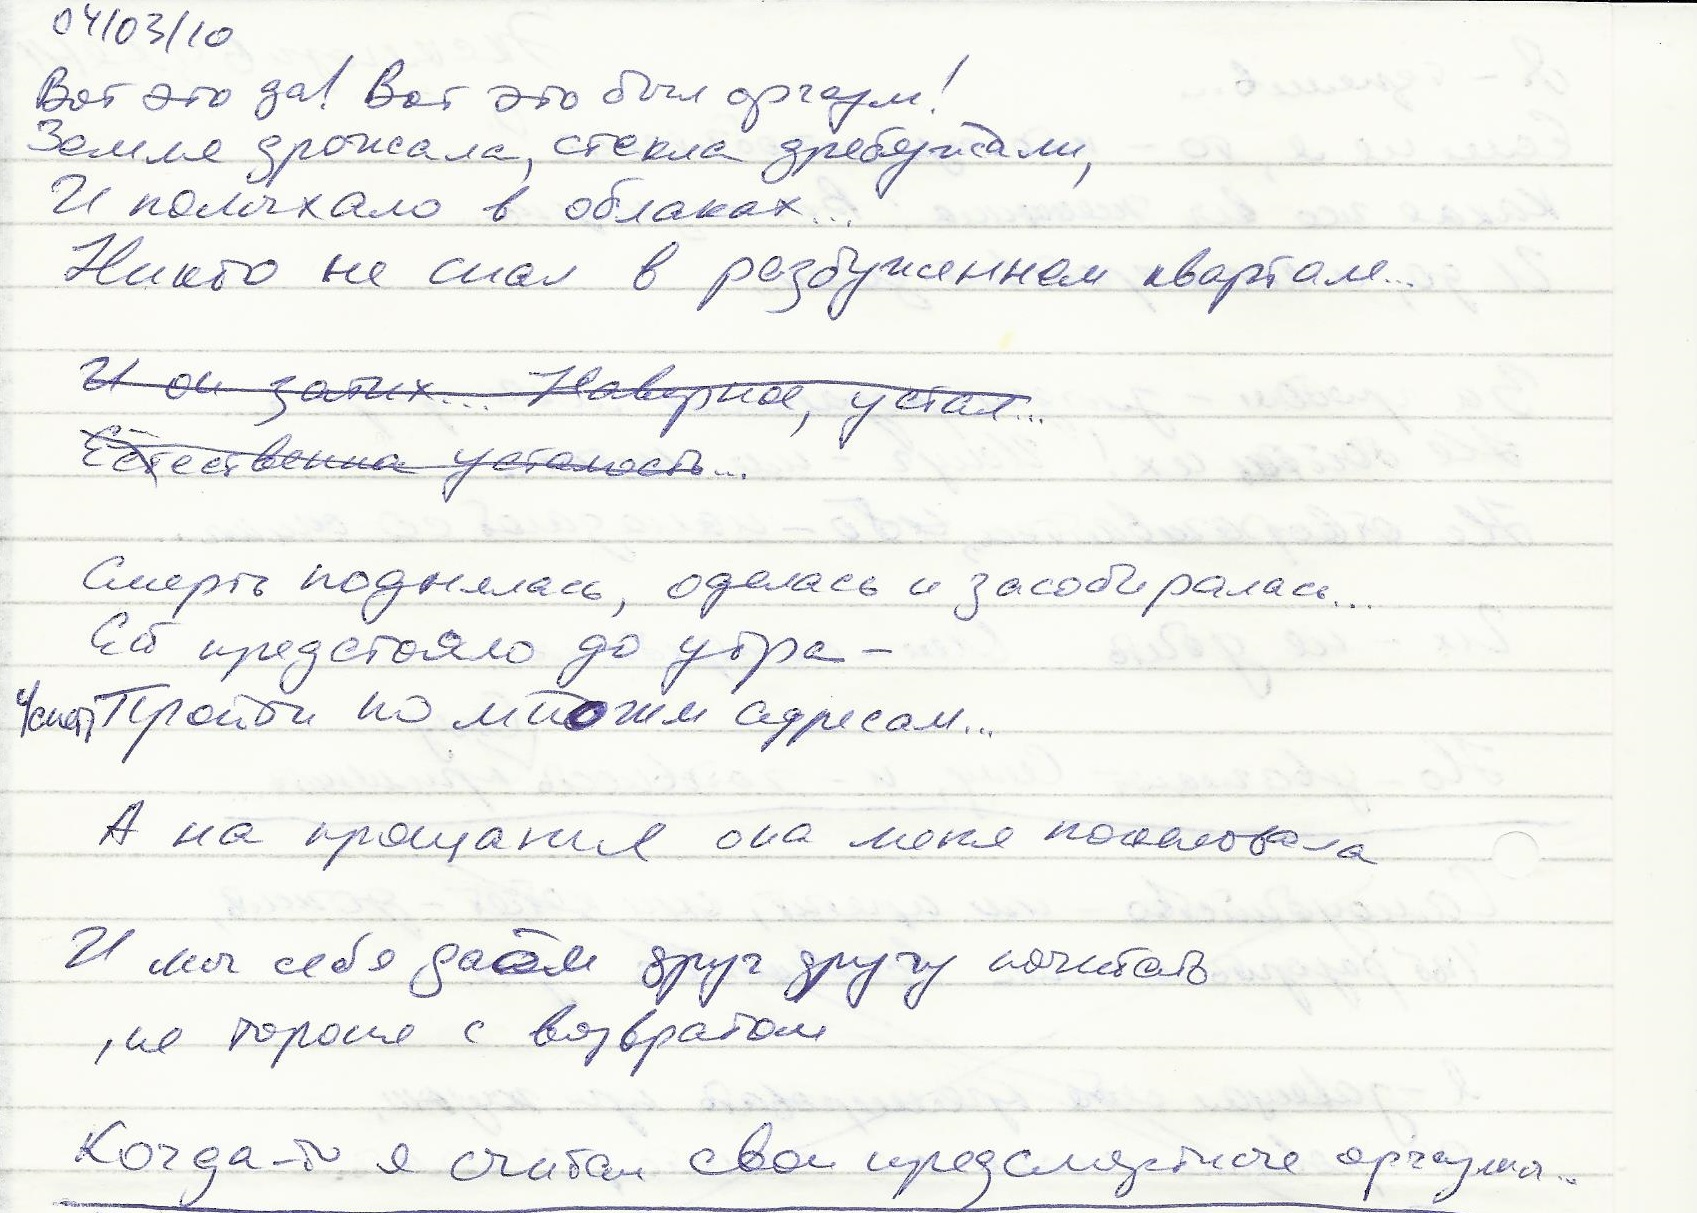 04/03/10
Вот это да! Вот это был оргазм!
Земля дрожала, стекла дребезжали,
И полыхало в облаках...
Никто не спал в разбуженном квартале...
И он затих... Наверное, устал...
Естественна усталость...
Смерть поднялась, оделась и засобиралась...
Ей предстояло до утра –
Пройти по многим адресам...
А на прощание она меня поцеловала
И мы себя даём друг другу почитать
, не торопя с возвратом
Когда-то я считал свои предсмертные оргазмы...